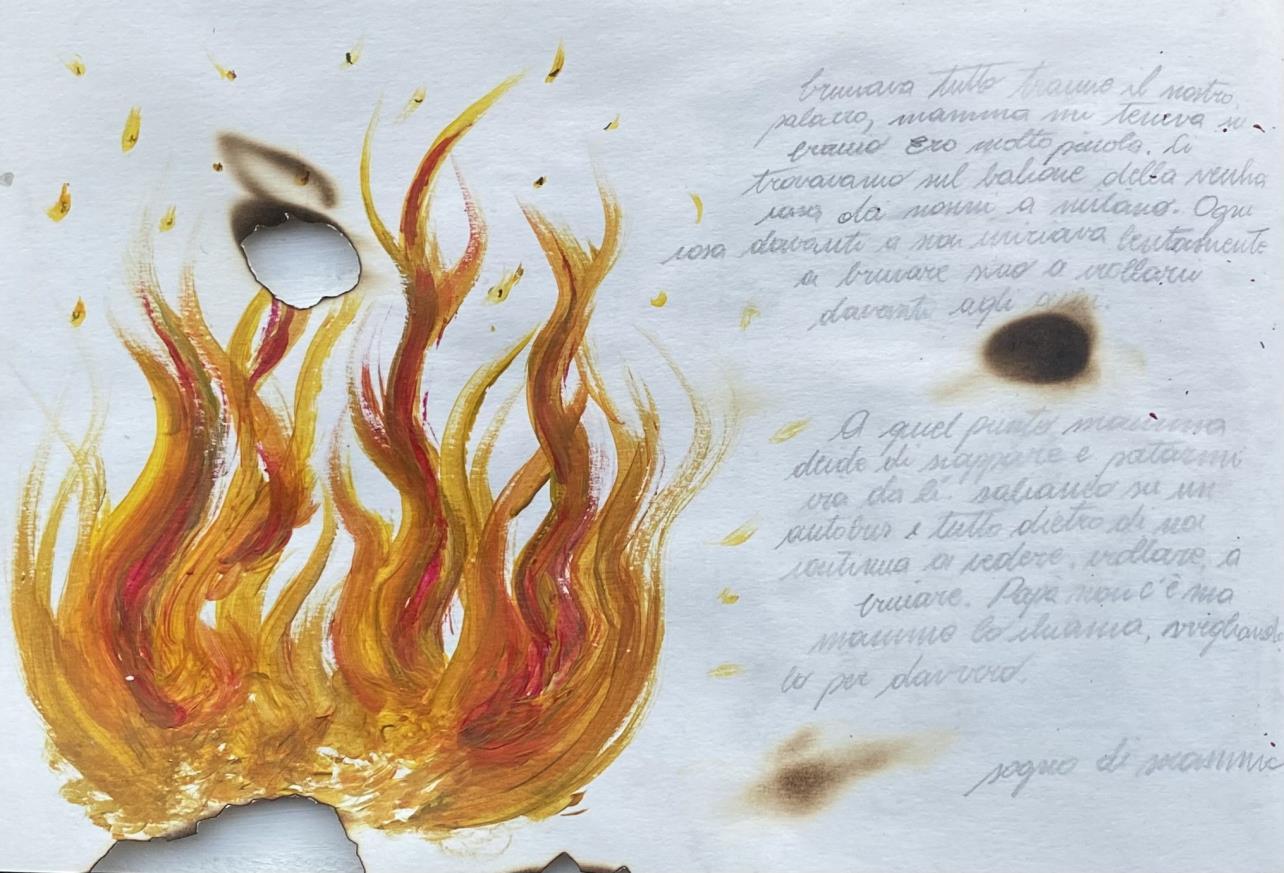 bruciava tutto tranne il nostro
palazzo, mamma mi teneva in
braccio ero molto piccola. Ci
trovavamo sul balcone della vecchia
casa dei nonni a milano. Ogni
cosa davanti a noi iniziava lentamente
a bruciare sino a crollarci
davanti agli occhi.
A quel punto mamma
decide di scappare e portarmi
via da lì. saliamo su un
autobus e tutto dietro di noi
continua a cedere, crollare, a
bruciare. Papà non c'è ma
mamma lo chiama, svegliando
lo per davvero.
sogno di mamma